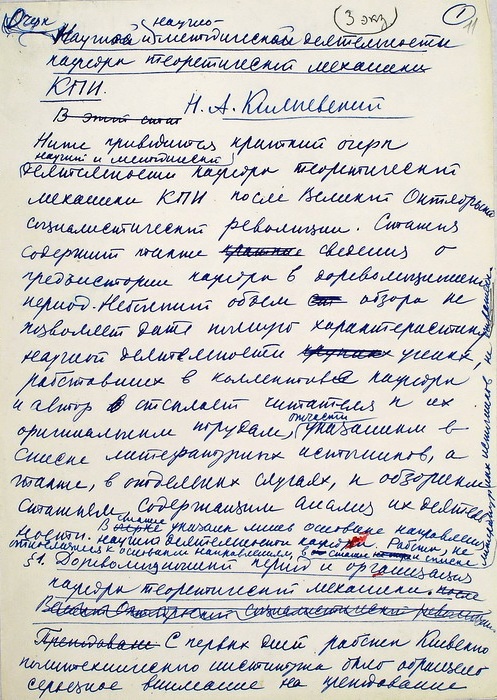 Очерк
(3 экз)
1
11
научно-
Научной и методической деятельности
кафедры теоретической механики
КПИ.
В этой статье
Н. А. Кильчевский
Ниже приводится краткий очерк
научной и методической
деятельности кафедры теоретической
механики КПИ после Великой Октябрьской
социалистической революции. Статья
содержит также краткие сведения о
предыстории кафедры в дореволюционный
период. Небольшой объем ст обзора не
позволяет дать полную характеристику
научной деятельности крупных ученых,
работавших в коллективе кафедры
и автор отсылает читателя к их
отчасти
оригинальным трудам, указанным в
списке литературных источников, а
также, в отдельных случаях, к обзорным
статьям, содержащим анализ их деятель-
ности. В статье указаны лишь основные направления
научной деятельности кафедры. Работы, не
относящиеся к основным направлениям, в списке
литературных источников не
§1. Дореволюционный период и организация
кафедры теоретической механики. после
Великой Октябрьской социалистической революции.
Преподаван С первых дней работы Киевского
политехнического института было обращено
серьезное внимание на преподавание